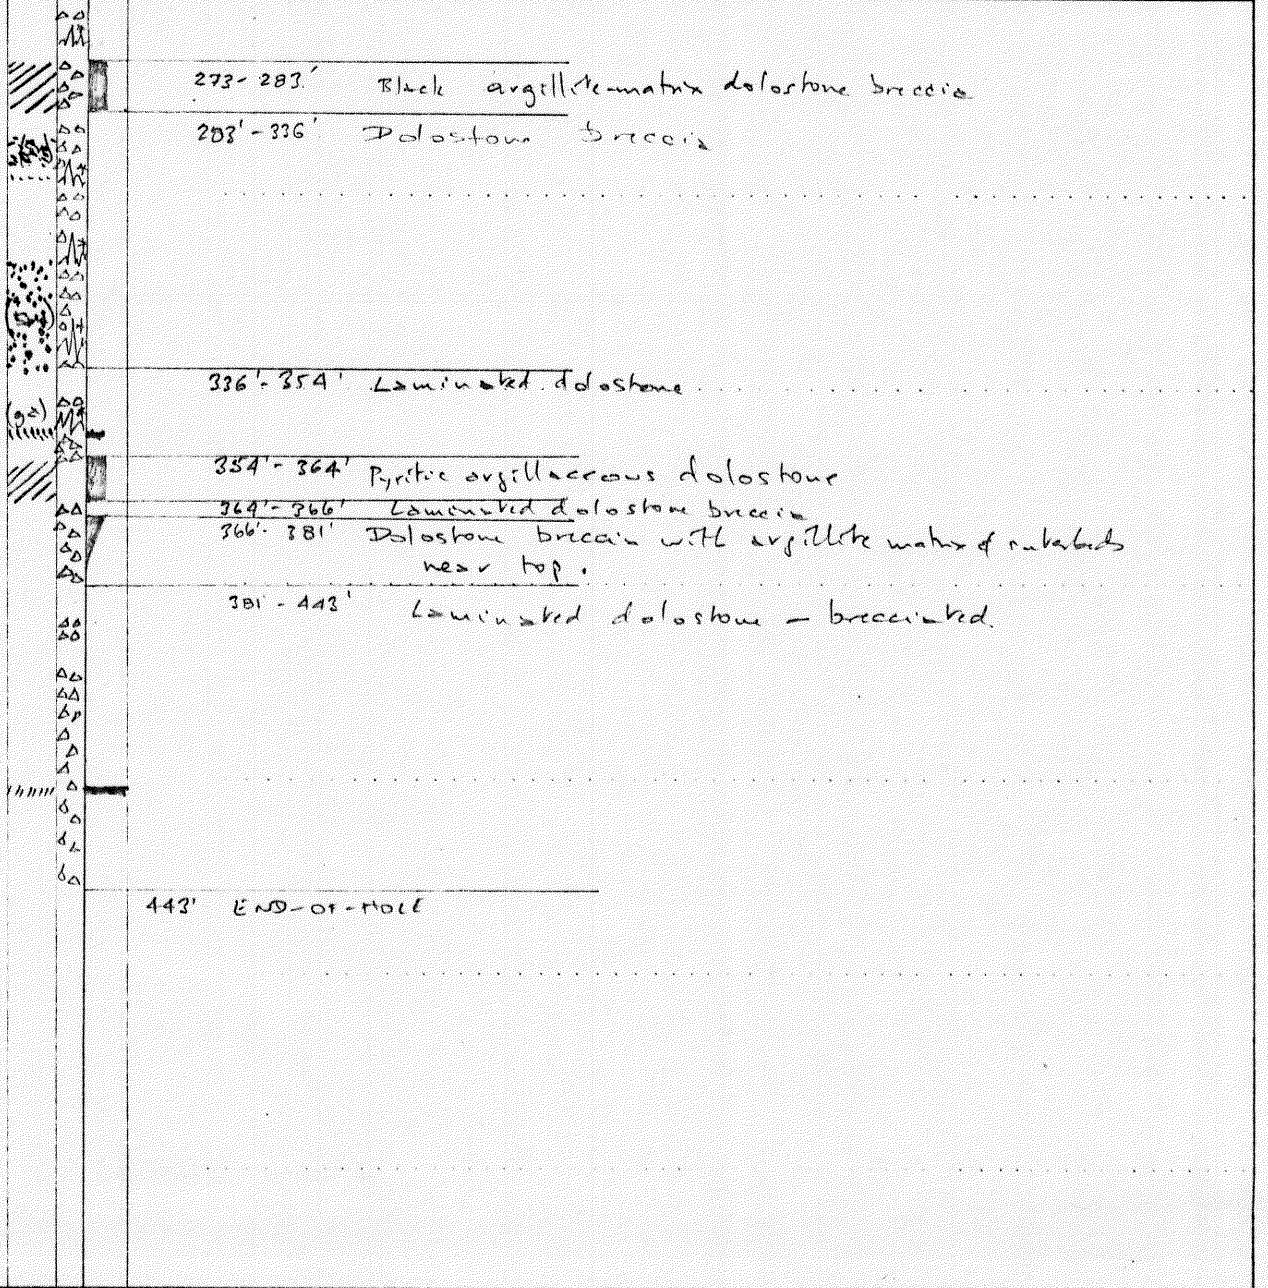 273 - 283' Black argillite-matrix dolostone breccia
283' - 336' Dolostone breccia
336' - 354' Laminated dolostone
(gz)
354' - 364' Pyritic argillaceous dolostone
364' - 366' Laminated dolostone breccia
366' - 381' Dolostone breccia with argillite matrix & interbeds
near top.
381 - 443' Laminated dolostone - brecciated.
443' END-OF-HOLE